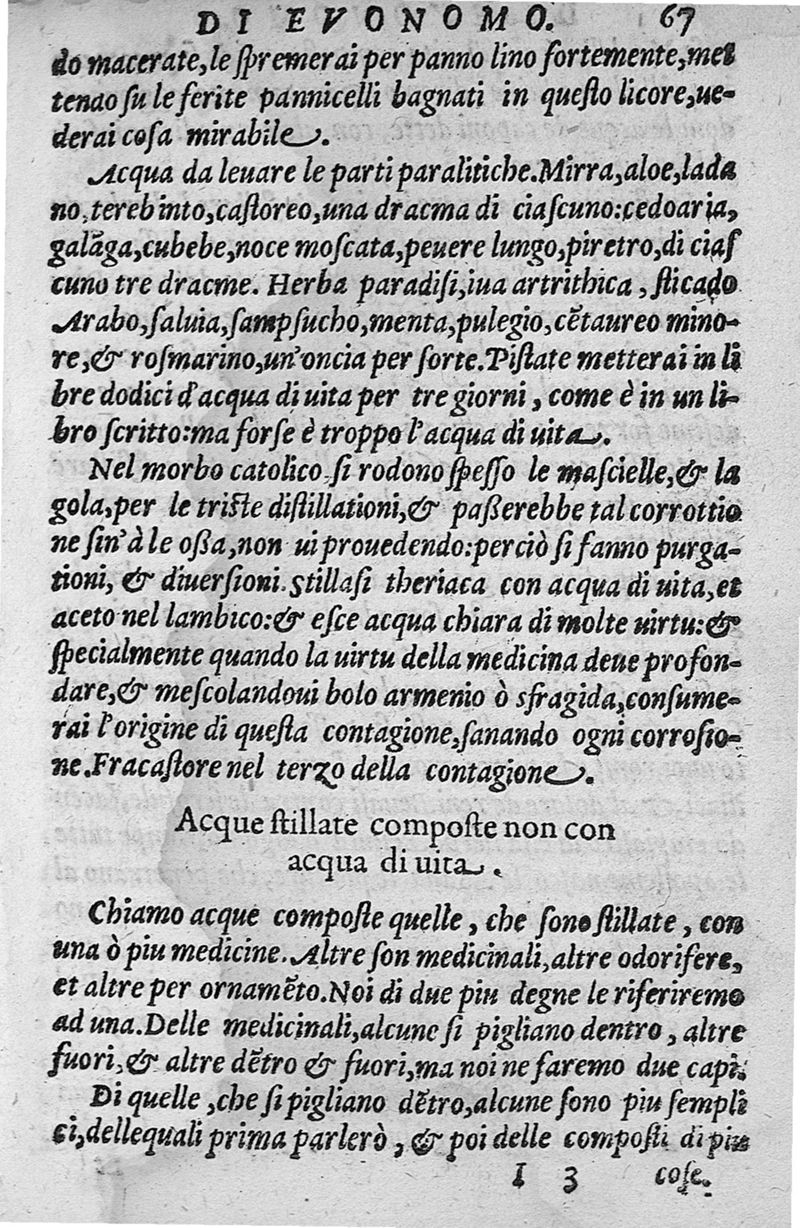 DI EVONOMO. 67
do macerate, le ſpremerai per panno lino fortemente, met
tendo ſu le ferite pannicelli bagnati in queſto licore, ue-
derai coſa mirabile.
Acqua da leuare le parti paralitiche. Mirra, aloe, lada
no, terebinto, caſtoreo, una dracma di ciaſcuno: cedoaria,
galãga, cubebe, noce moſcata, peuere lungo, piretro, di ciaſ
cuno tre dracme. Herba paradiſi, iua artrithica, ſticado
Arabo, ſaluia, ſampſucho, menta, pulegio, cẽtaureo mino-
re, & roſmarino, un'oncia per ſorte. Piſtate metterai in li
bre dodici d'acqua di uita per tre giorni, come è in un li-
bro ſcritto: ma forſe è troppo l'acqua di uita.
Nel morbo catolico ſi rodono ſpeſſo le maſcielle, & la
gola, per le triſte diſtillationi, & paßerebbe tal corrottio
ne ſin'à le oßa, non ui prouedendo: perciò ſi fanno purga-
tioni, & diuerſioni. Stillaſi theriaca con acqua di uita, et
aceto nel lambico: & eſce acqua chiara di molte uirtu: &
ſpecialmente quando la uirtu della medicina deue profon-
dare, & meſcolandoui bolo armenio ò sfragida, conſume-
rai l'origine di queſta contagione, ſanando ogni corroſio-
ne. Fracaſtore nel terzo della contagione.
Acque ſtillate compoſte non con
acqua di uita.
Chiamo acque compoſte quelle, che ſono ſtillate, con
una ò piu medicine. Altre ſon medicinali, altre odorifere,
et altre per ornamẽto. Noi di due piu degne le riferiremo
ad una. Delle medicinali, alcune ſi pigliano dentro, altre
fuori, & altre dẽtro & fuori, ma noi ne faremo due capi.
Di quelle, che ſi pigliano dẽtro, alcune ſono piu ſempli
ci, dellequali prima parlerò, & poi delle compoſti di piu
I 3 coſe.